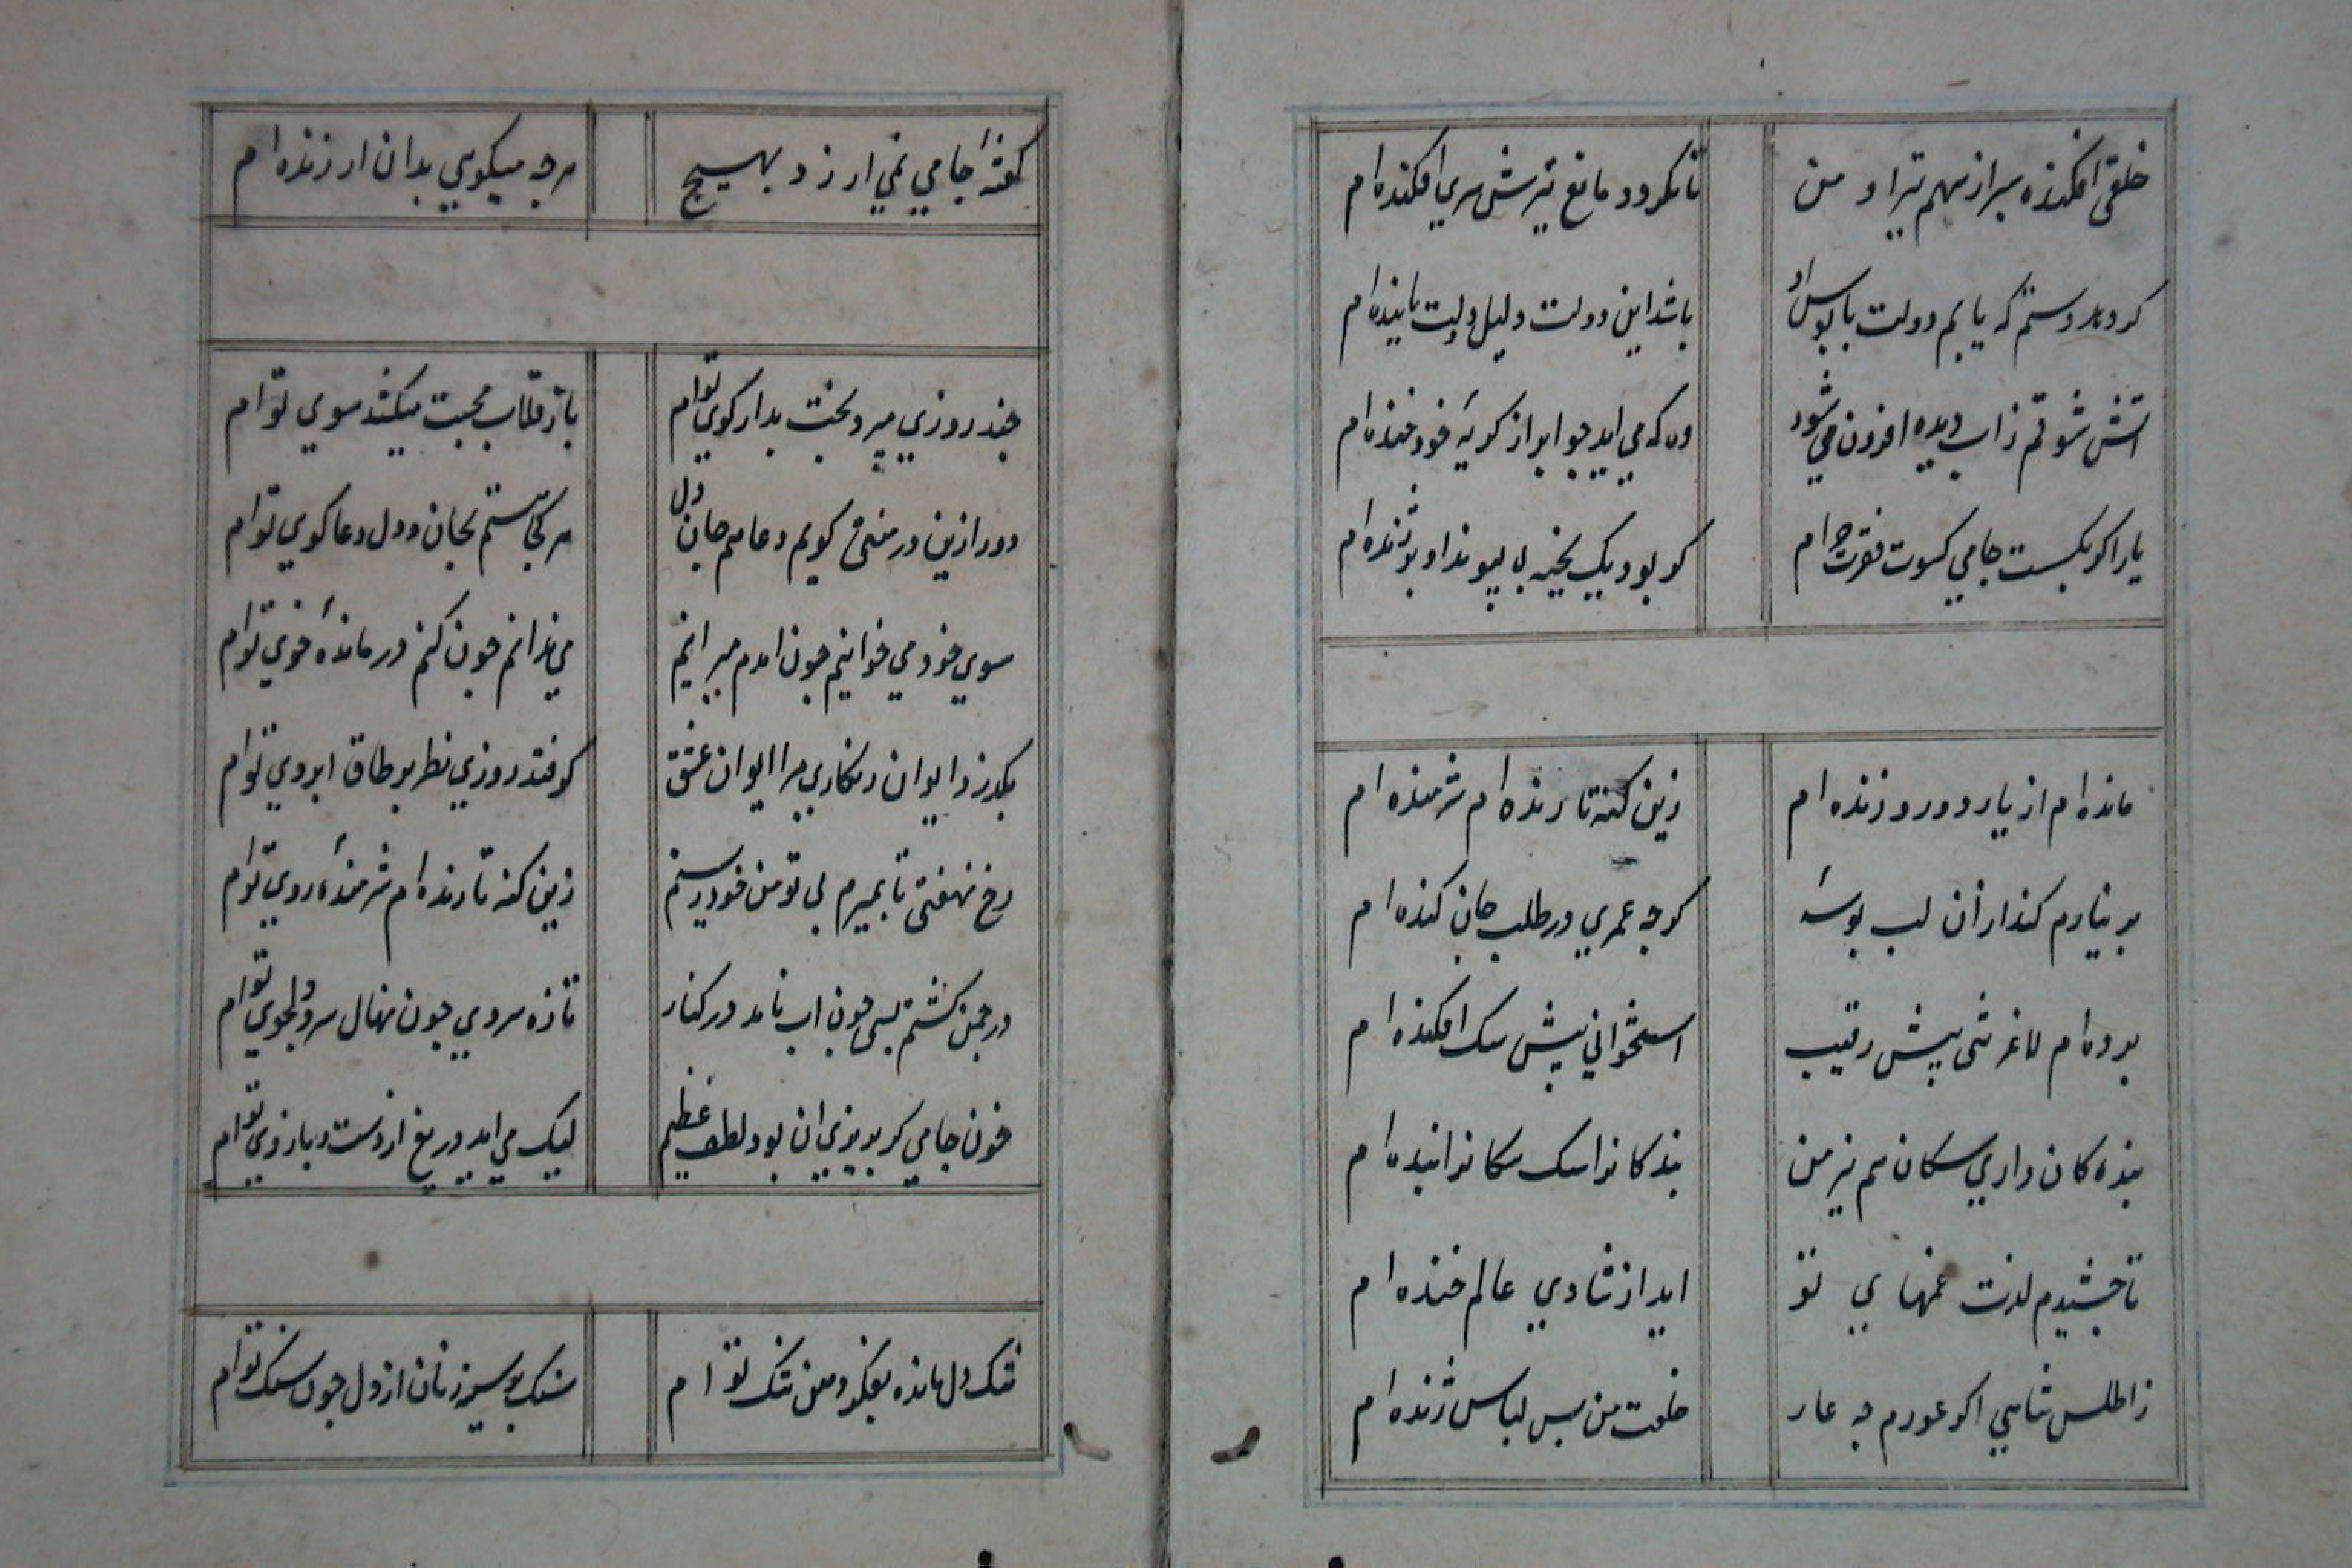 خلقی افکنده سر از سهم تیر او و من تا نکردد مانع تیرش سری افکنده ام
کر دهد دستم که یابم دولت پابوس او باشد این دولت دلیل دولت پاینده ام
اتش شوقم ز اب دیده افزون می شود وه که می اید جو ابر از کریه خود خنده ام
یار اکر بکسست جامی کسوت فقرت جه ام کو بود یک بخیه بی پیوند او بر ژنده ام
مانده ام از یار دور و زنده ام زین کنه تا زنده ام شرمنده ام
بر نیارم کند از ان لب بوسهٔ کرجه عمری در طلب جان کنده ام
برده ام لاغر تنی پیش رقیب استخوانی پیش سک افکنده ام
بنده کان داری سکان هم نیز من بندکانرا سک سکانرا بنده ام
تا جشیدم لذت غمهای تو اید از شادی عالم خنده ام
ز اطلس شاهی اکر عورم جه عار خلعت من بس لباس ژنده ام
کفتهٔ جامی نمی ارزد بهیج هرجه میکویی بدان ارزنده ام
جند روزی میبرد بخت بد از کوی توام باز قلاب محبت میکشد سوی توام
دور ازین در منشی کویم دعا هم جان دل هر کجا هستم بجان و دل دعا کوی توام
سوی خود می خوانیم جون امدم میرانیم می ندانم جون کنم درماندهٔ خوی توام
بکذرند ایوان رنکاری مرا ایوان عشق کر فتد روزی نظر بر طاق ابروی توام
رخ نهفتی تا بمیرم بی تو من خود زیستم زین کنه تا زنده ام شرمندهٔ روی توام
در جمن کشتم بسی جون اب نامد در کنار تازه سروی جون نهال سرو دلجوی توام
خون جامی کر بریزی ان بود لطف عظیم لیک می اید دریغ از دست و بازوی توام
تنک دل مانده بفکر دهن تنک توام سنک بر سینه زنان از دل جون سنک توام